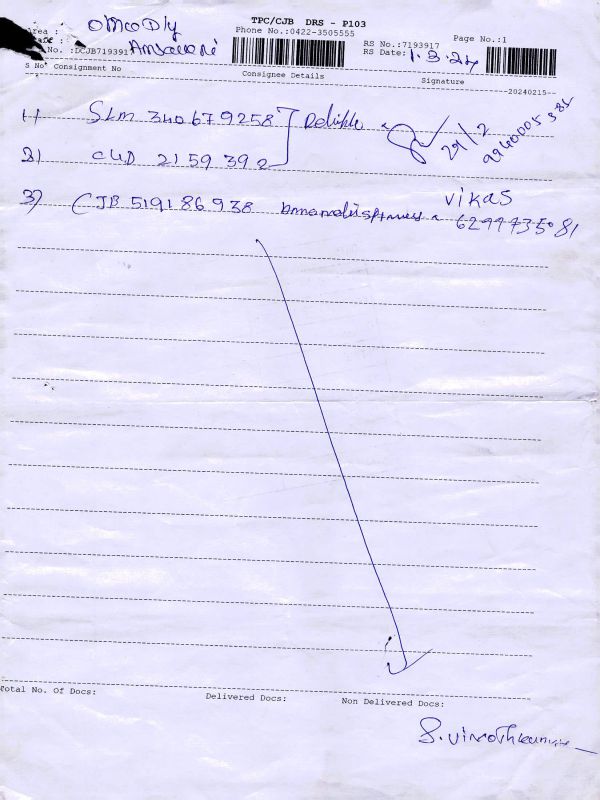 TPC/CJB DRS - P103
Phone No.:0422-3505555
Area :
OMCODly
RS No.:7193917
Page No.:1
No. :DCJB7193917
RS Date: 1.3.24
S No Consignment No
Consignee Details
Signature
20240215
1) SLM 340679258 Reliable
29/2
2) CUD 2159392
3) CJB 519186938
VikAS
Total No. Of Docs:
Delivered Docs:
Non Delivered Docs:
S. Vinothkumar